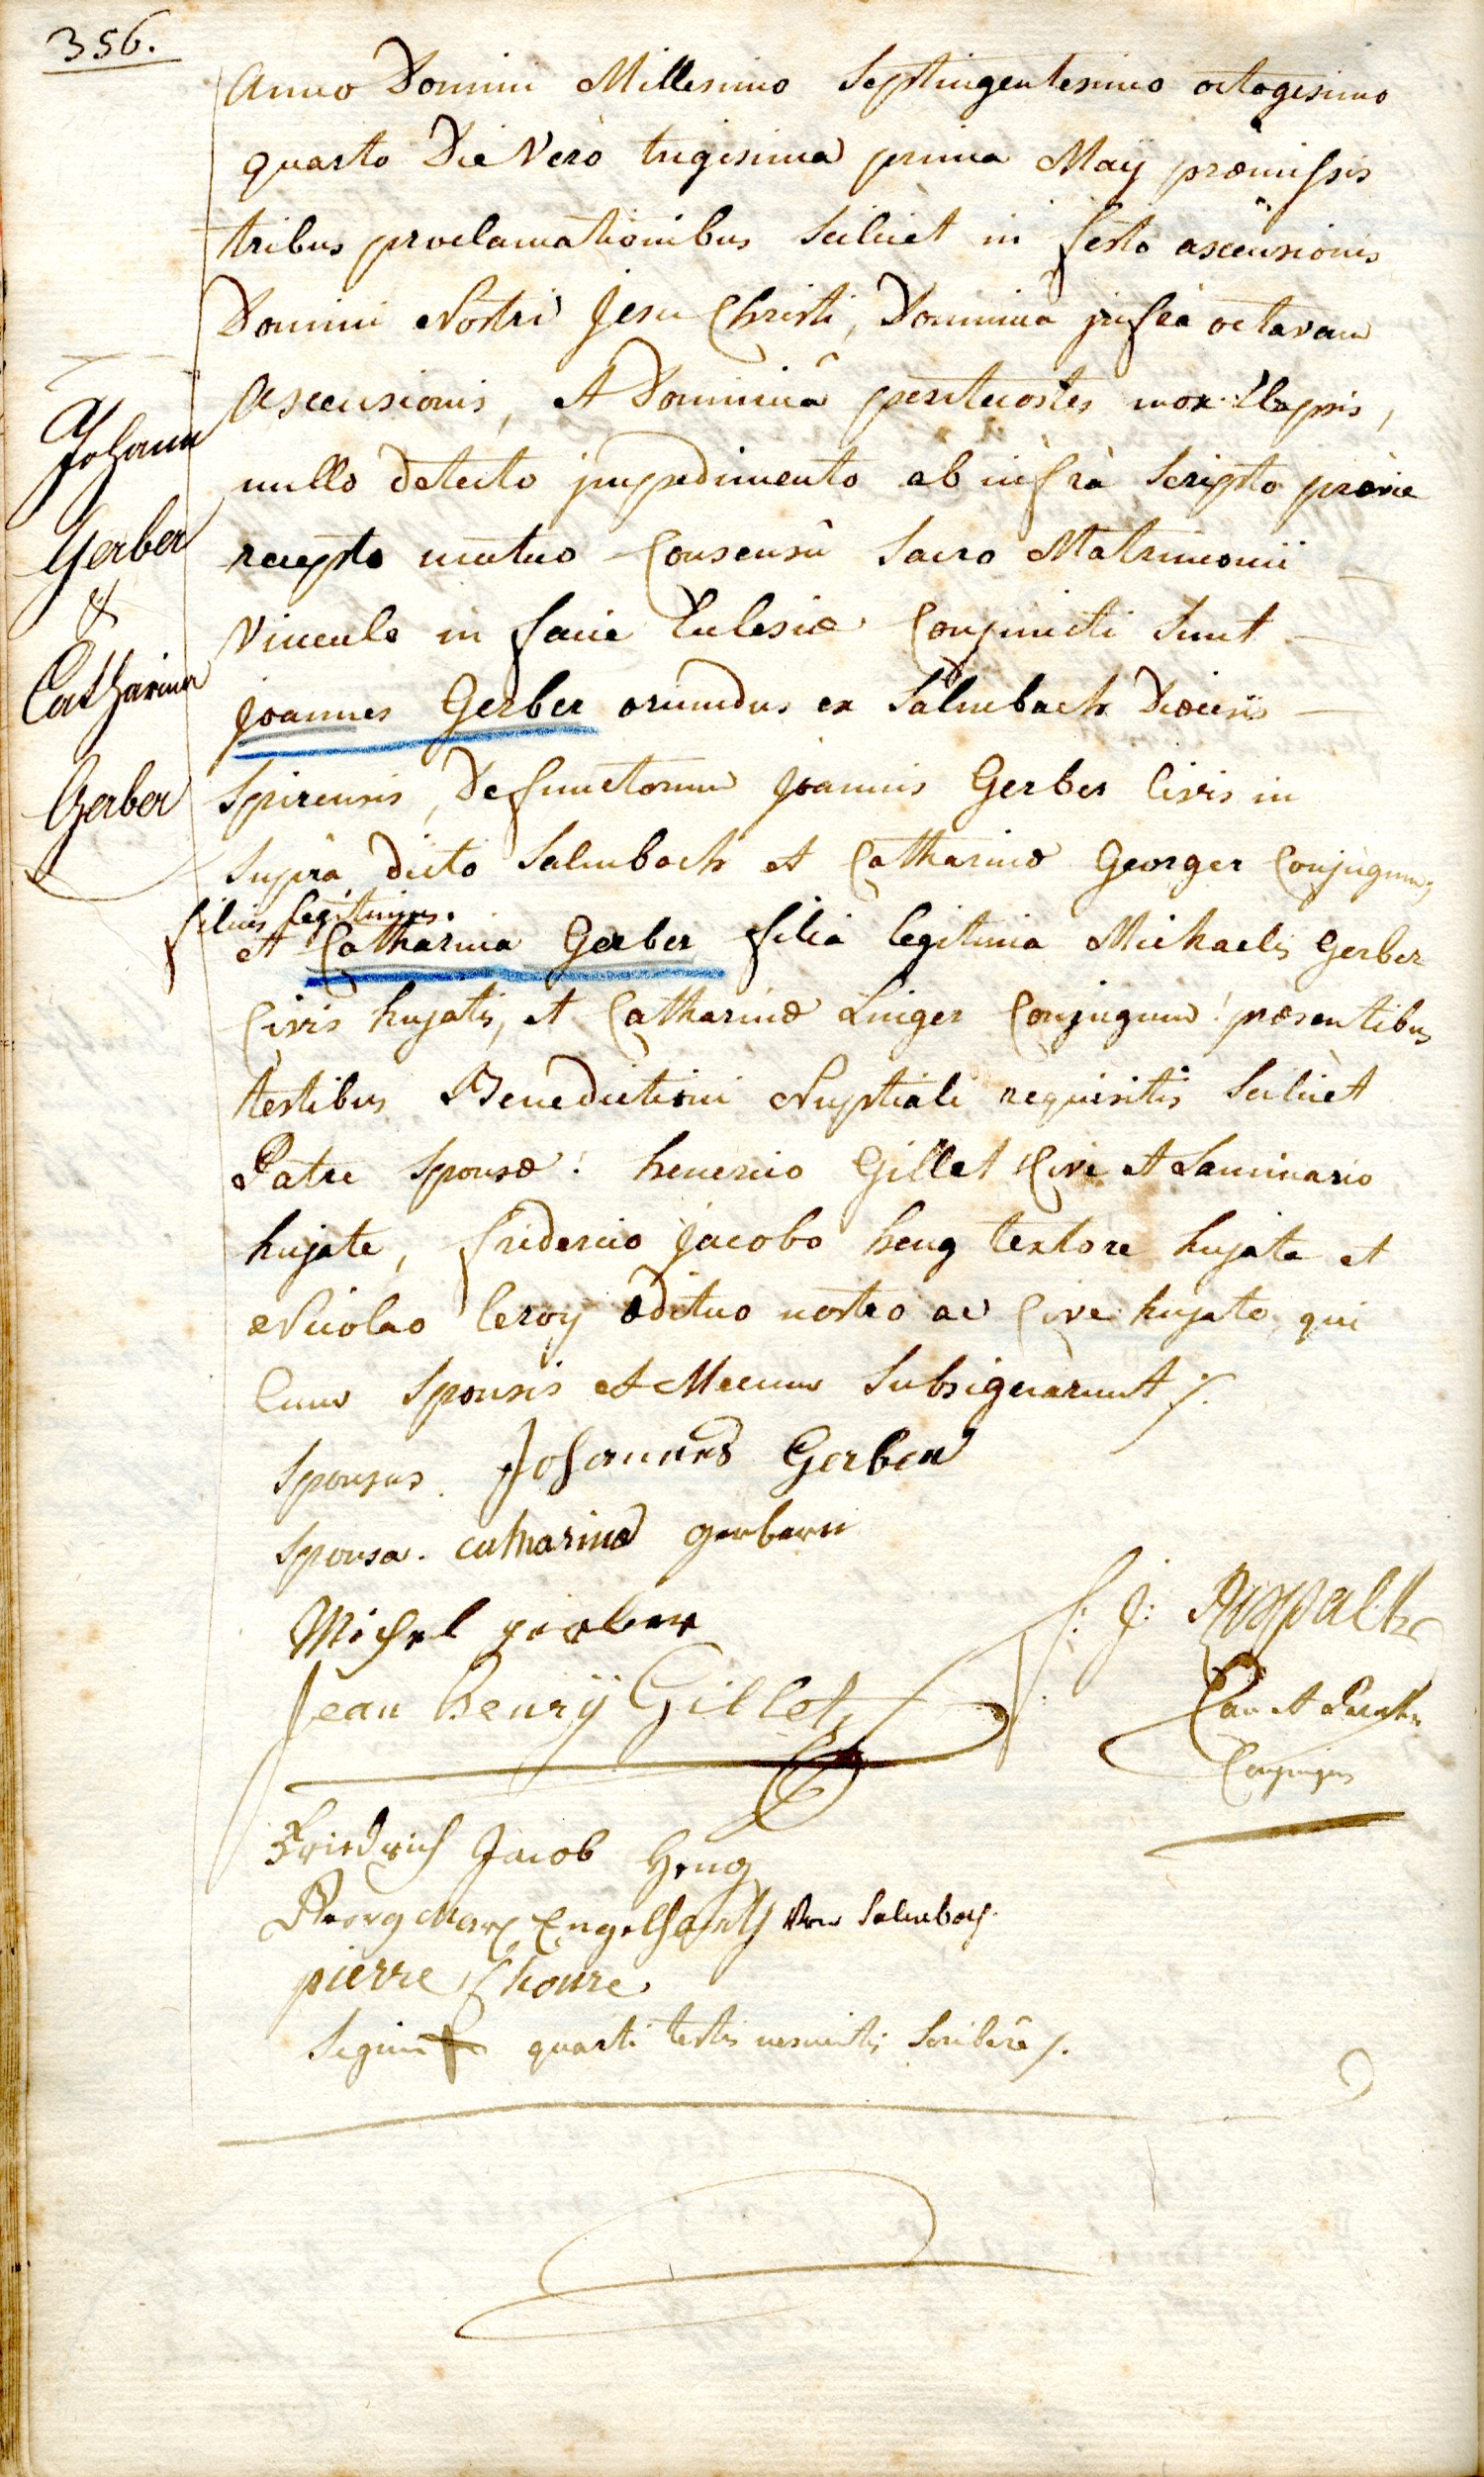 356.
Anno Domini Millesimo Septingentesimo octogesimo
quarto Die Verò trigesima prima Maÿ præmissis
tribus proclamationibus Scilicet in festo ascensionis
Domini Nostri Jesu Christi, Dominica infra octavam
Ascensionis, et Dominicâ pentecostes mox Elapsis,
nullo detecto impedimento ab infrà Scripto prævie
recepto mutuo Consensû Sacro Matrimonii
Vinculo in facie Ecclesiæ Conjuncti Sunt
Joannes Gerber oriundus ex Salmbach Diœcesis
Spirensis, Defunctorum Joannis Gerber Civis in
Suprà dicto Salmbach et Catharinæ Georger Conjugum,
filius legitimus.
et Catharina Gerber filia legitima Michaelis Gerber
Civis hujatis, et Catharinæ Linger Conjugum! præsentibus
testibus Benedictioni Nuptiali requisitis Scilicet
Patre Sponsæ: henerico Gillet Cive et Laminario
hujate, friderico Jacobo heng textore hujate et
Nicolao leroy ædituo nostro ac Cive hujate, qui
Cum Sponsis et Mecum Subsignarunt /.
Johann
Gerber
&
Catharina
Gerber
Sponsus. Johannes Gerber
Sponsa. catharina gerberin
Michel gerber
f: J:
Jean henrÿ Gillet
Can et
Friedrich Jacob Heng
Georg Marx Engelhardt Von Salmbach.
pierre
Signum + quarti testis nescientis Scribere /.